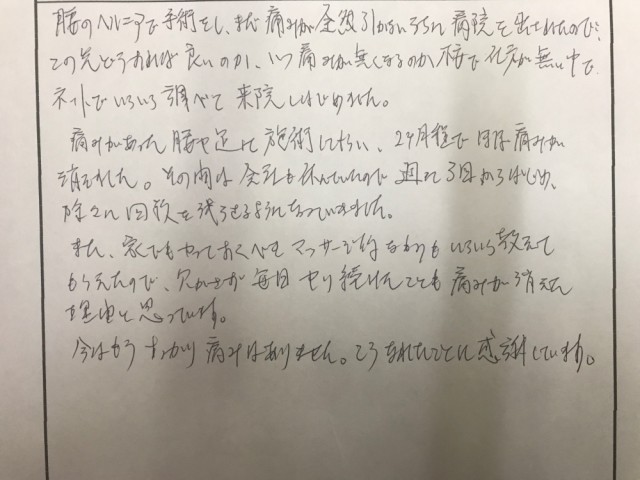 腰のヘルニアで手術をし、まだ痛みが全然引かないうちに病院を出されたので、
この先どうすれば良いのか、いつ痛みが無くなるのか不安で仕方が無い中で
ネットでいろいろ調べて来院しはじめました。
痛みがあった腰や足に施術してもらい、2ヶ月程でほぼ痛みが
消えました。その間は会社も休んでいたので週に3回からはじめ、
除々に回数を減らせるようになっていきました。
また、家でもやっておくべきマッサージ的なものもいろいろ教えて
もらえたので、欠かさず毎日やり続けたことも痛みが消えた
理由と思っています。
今はもうすっかり痛みはありません。こうなれたことに感謝しています。